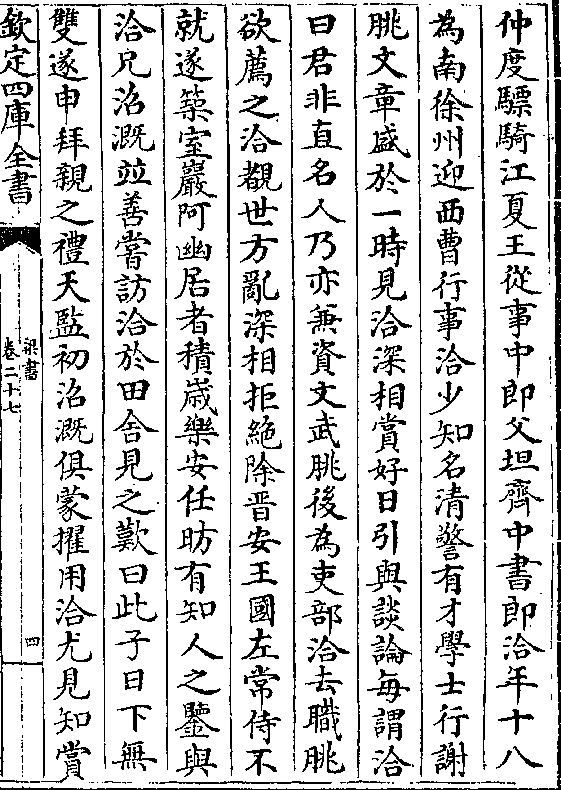 仲度驃騎江夏王從事中郎父坦齊中書郎洽年十八
為南徐州迎西曹行事洽少知名清警有才學士行謝
朓文章盛於一時見洽深相賞好日引與談論每謂洽
曰君非直名人乃亦兼資文武朓後為吏部洽去職朓
欲薦之洽覩世方亂深相拒絶除晋安王國左常侍不
就遂築室巖阿幽居者積歲樂安任昉有知人之鑒與
洽兄沼溉並善嘗訪洽於田舍見之歎曰此子日下無
雙遂申拜親之禮天監初沼溉俱蒙擢用洽尤見知賞
欽定四庫全書
梁書
卷二十七
四